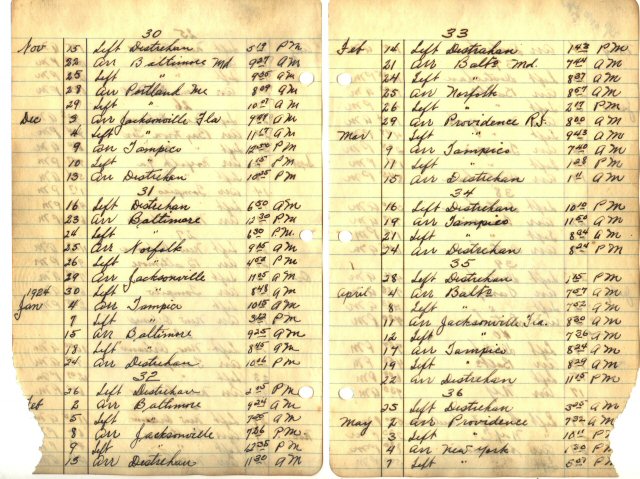 30
Nov 15 Left Destrehan 5 13 P M
22 Arr Baltimore Md 9 27 A M
25 Left " 9 25 A M
28 Arr Portland Me 8 09 A M
29 Left " A M
Dec 3 Arr Jacksonville Fla A M
4 Left " A M
9 Arr Tampico P M
10 Left " 6 15 P M
13 Arr Destrehan 10 25 P M
31
16 Left Destrehan 6 30 A M
23 Arr Baltimore 12 30 P M
24 Left " 6 30 P M
25 Arr Norfolk 9 15 A M
26 Left " 4 50 P M
29 Arr Jacksonville 11 25 A M
1924 30 Left " 8 48 A M
Jan 4 Arr Tampico 10 15 A M
7 Left " P M
15 Arr Baltimore 9 25 A M
18 Left " 8 45 A M
24 Arr Destrehan 10 06 P M
32
26 Left Destrehan 2 25 P M
Feb 2 Arr Baltimore 9 24 A M
5 Left " A M
8 Arr Jacksonville 7 26 P M
9 Left " 12 35 P M
13 Arr Destrehan 11 30 A M
33
Feb 14 Left Destrehan 1 43 P M
21 Arr Balto Md. 7 44 A M
24 Left " 8 37 A M
25 Arr Norfolk 8 57 A M
26 Left " 2 17 P M
29 Arr Providence R.I. 8 00 A M
Mar 1 Left " 9 43 A M
9 Arr Tampico 7 40 A M
11 Left " 1 28 P M
15 Arr Destrehan A M
34
16 Left Destrehan 10 10 P M
19 Arr Tampico 11 50 A M
21 Left " 8 24 A M
24 Arr Destrehan 8 24 P M
35
28 Left Destrehan 1 15 P M
April 4 Arr Balto 7 57 A M
8 Left " 7 52 A M
11 Arr Jacksonville Fla. 8 30 A M
12 Left " 7 36 A M
17 Arr Tampico 8 24 A M
19 Left " 8 29 A M
22 Arr Destrehan 11 15 P M
36
25 Left Destrehan 3 25 A M
May 2 Arr Providence 7 32 A M
3 Left " P M
4 Arr New York 1 30 P M
7 Left " P M